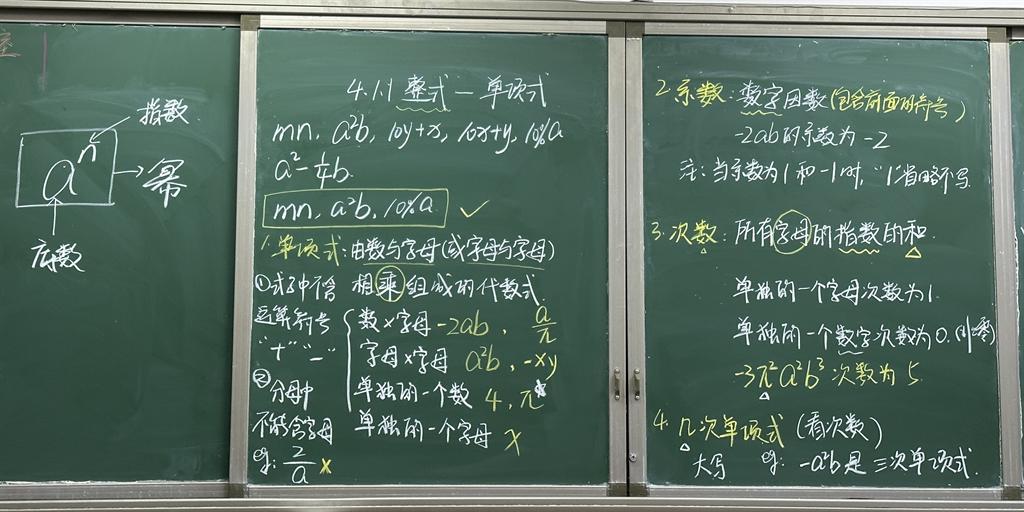 指数
aⁿ → 幂
底数
4.1.1 整式—单项式
mn, a²b, 10y+x, 10x+y, 10%a
a²-¼b.
mn, a²b, 10%a. ✓
1.单项式:由数与字母(或字母与字母)
相乘组成的代数式.
①式子中不含
运算符号
"+""-"
②分母中
不能含字母
eg: 2/a ×
数×字母 -2ab, a/π
字母×字母 a²b, -xy
单独的一个数 4, π
单独的一个字母 x
2.系数:数字因数(包含前面的符号)
-2ab的系数为-2
注:当系数为1和-1时,"1"省略不写.
3.次数:所有字母的指数的和.
单独的一个字母次数为1.
单独的一个数字次数为0.(非零)
-3π²a²b³次数为5.
4.几次单项式(看次数)
大写 eg: -a²b是三次单项式.